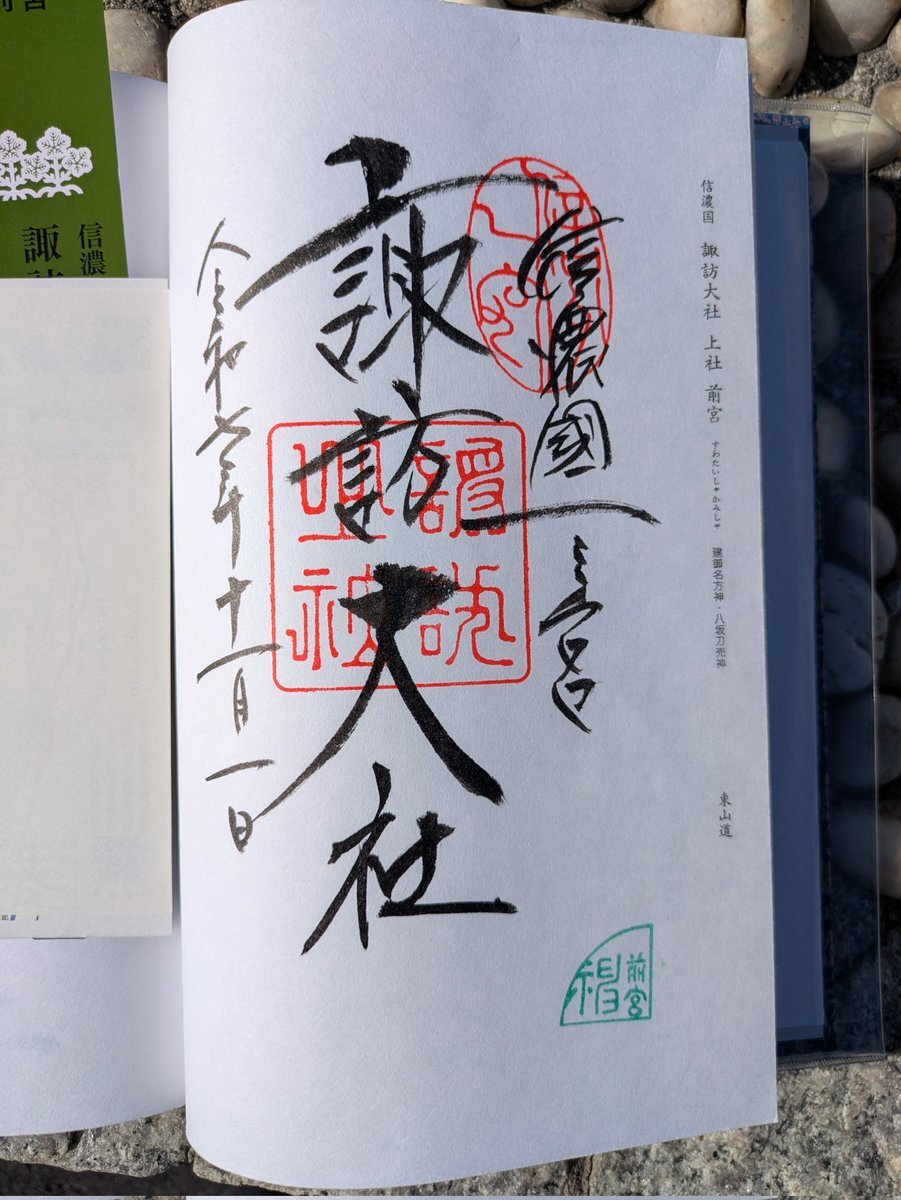 信濃国 諏訪大社 上社 前宮 すわたいしゃかみしゃ 建御名方神・八坂刀売神
東山道
信濃國一之宮
諏訪大社
令和七年十一月一日
前宮
信濃
諏